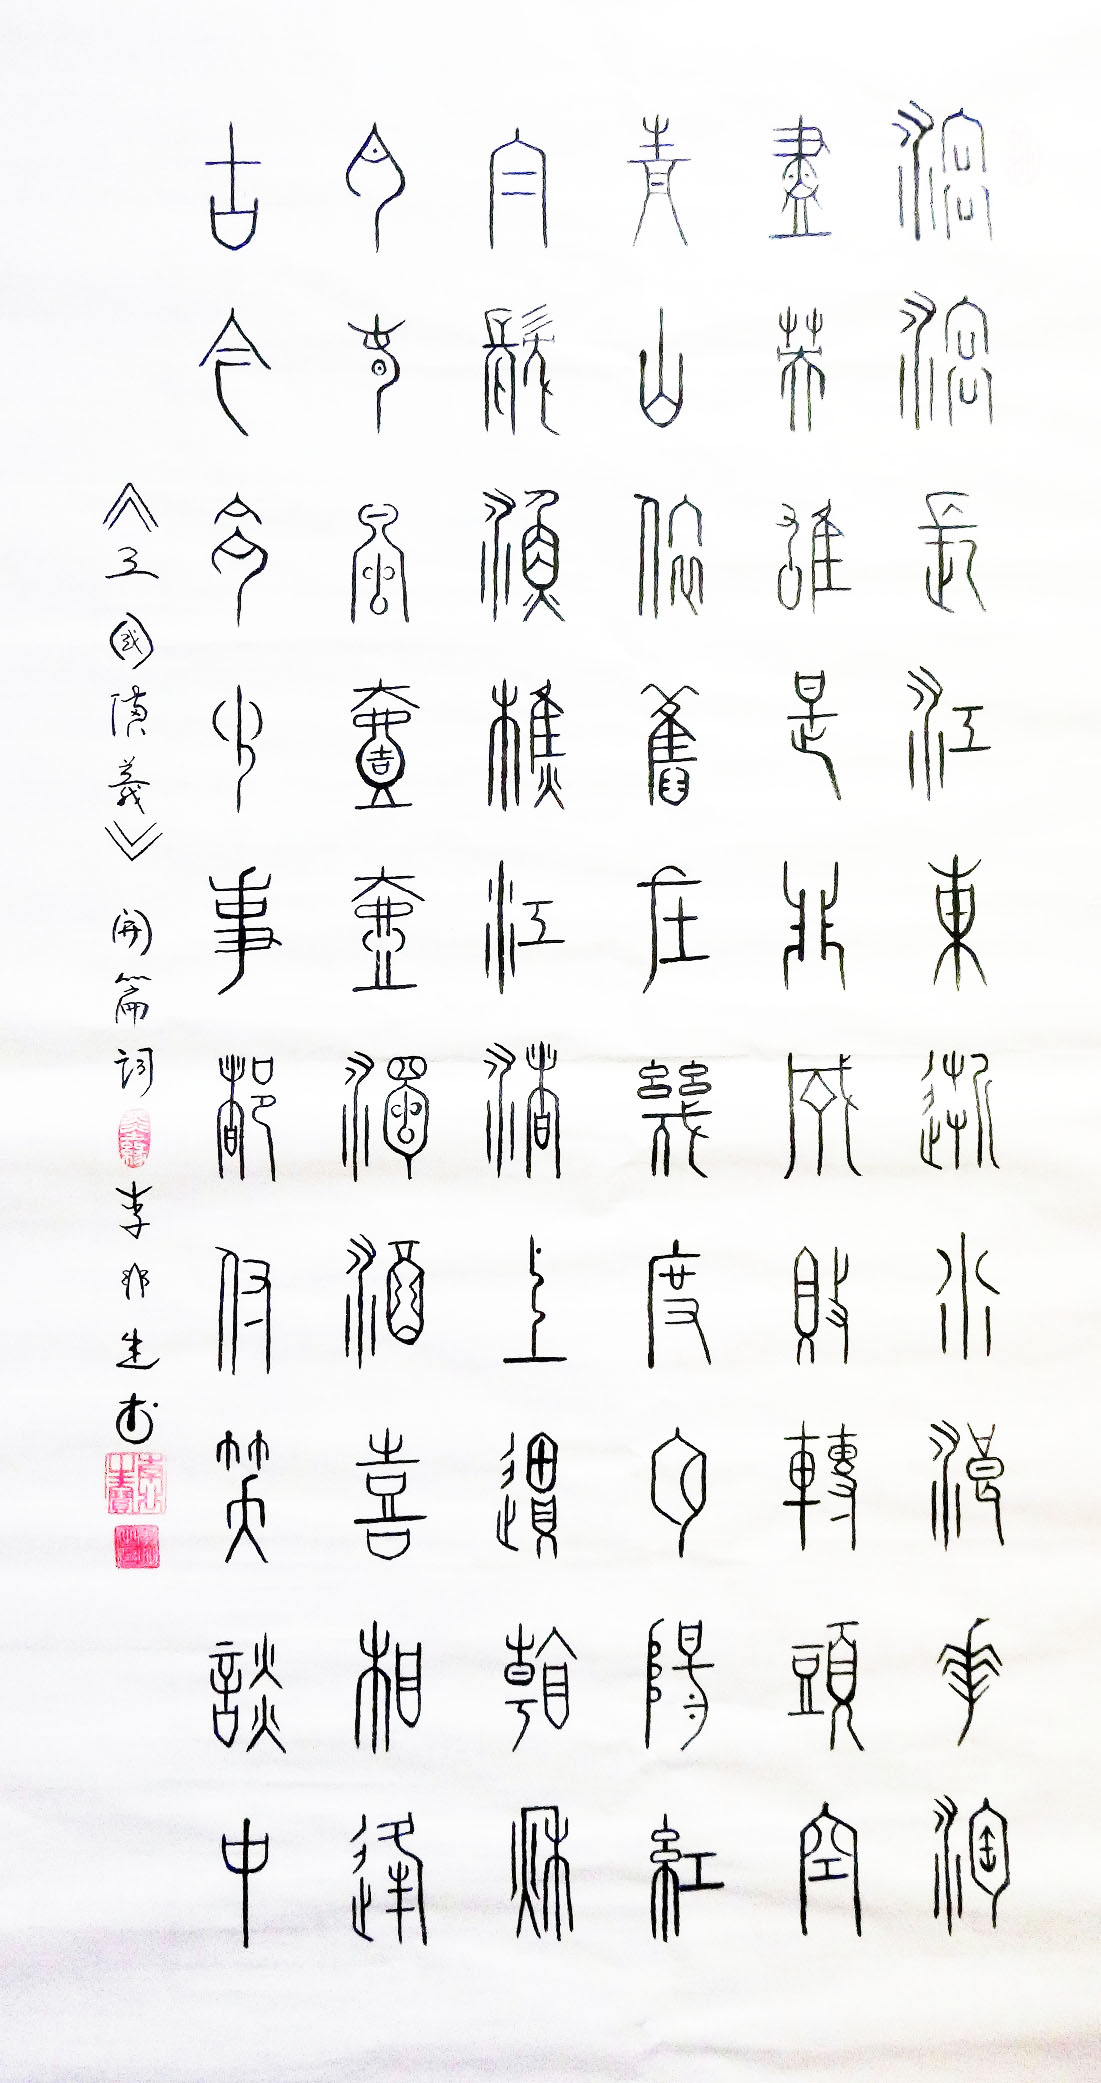 滾滾長江東逝水浪花淘
盡英雄是非成敗轉頭空
青山依舊在幾度夕陽紅
白髮漁樵江渚上慣看秋
月春風一壺濁酒喜相逢
古今多少事都付笑談中
《三國演義》開篇詞 李非生书